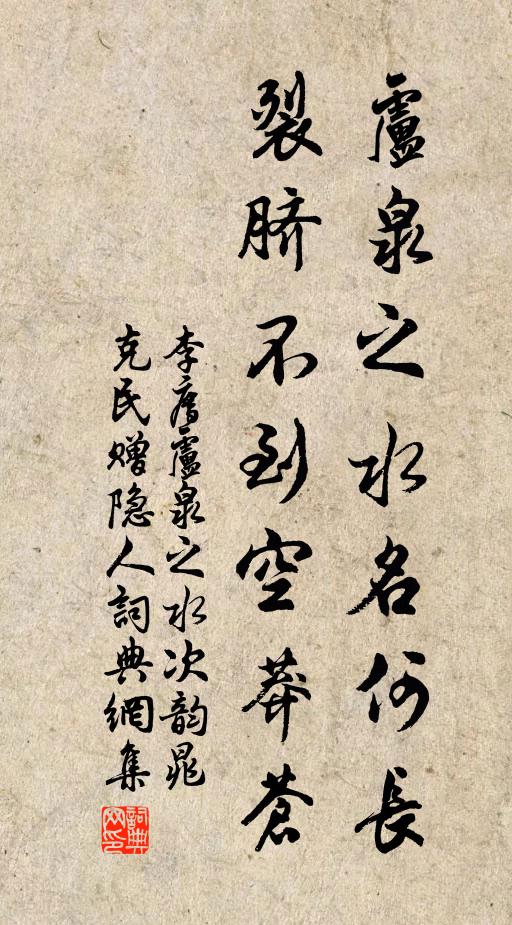 廬泉之水名何長
裂臍不到空莽蒼
李廌廬泉之水次韵晁
克民赠隐人詞典網集
詞典网印